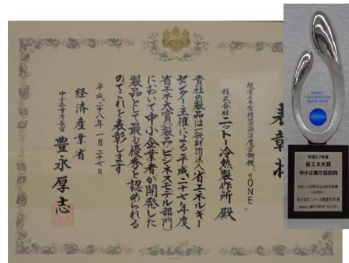 表彰状
超省エネ型精密温度空調機「eONE」
株式会社ニットー冷熱製作所 殿
貴社の製品は一般財団法人省エネルギー
センター主催による平成二十七年度
省エネ大賞(製品・ビジネスモデル部門)
において中小企業者が開発した
製品として最も優秀と認められる
のでこれを表彰します
平成二十八年一月二十七日
経済産業省
中小企業庁長官 豊永厚志
平成27年度
省エネ大賞
中小企業庁長官賞